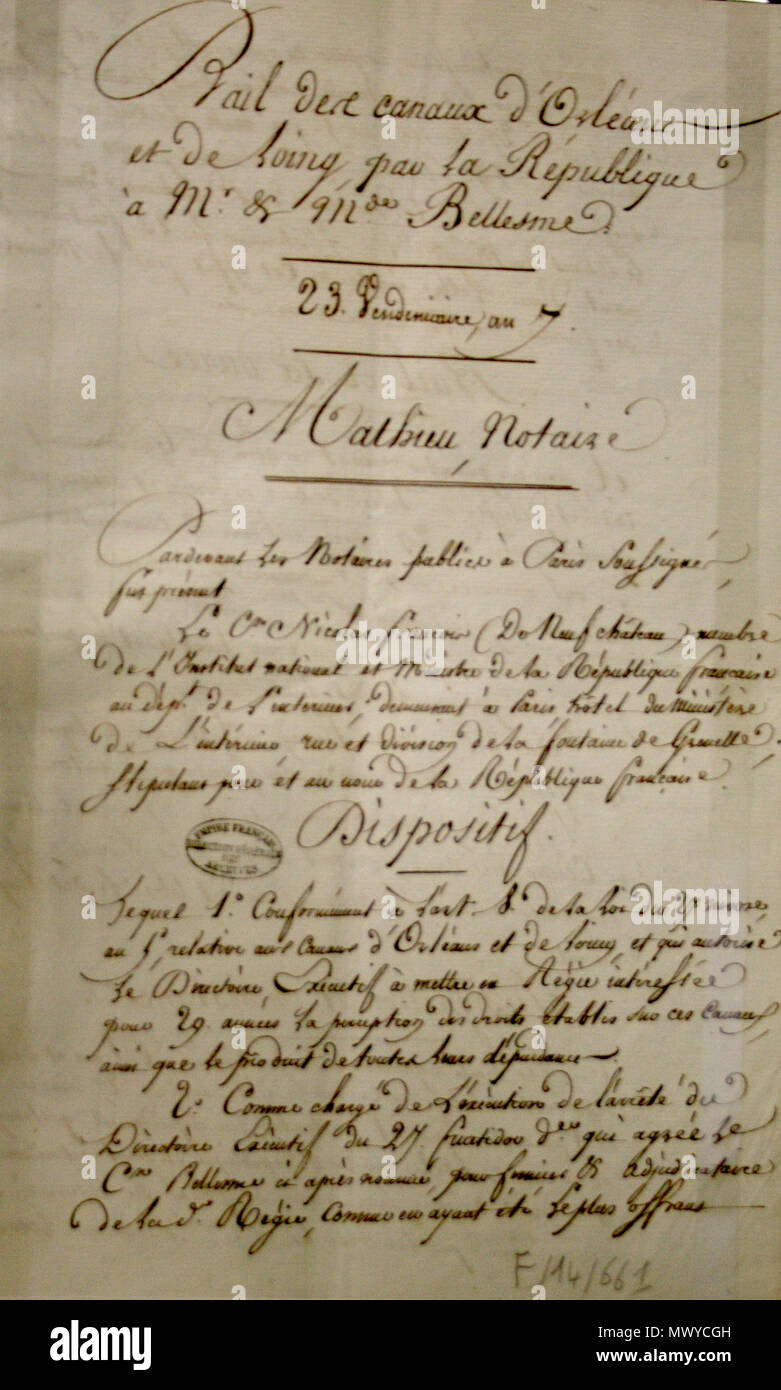 Bail des canaux d'Orléans
et de Loing par la République
à Mr. & Mde. Bellesme.
23. Vendémiaire, an 7.
Mathieu, Notaire
Pardevant les Notaires publics à Paris Soussignés
fut présent
Le Cen Nicolas François (De Neufchâteau) membre
de l'Institut national et Ministre de la République française
au dépt. de l'intérieur, demeurant à Paris hôtel du Ministère
de L'intérieur rue et division de la fontaine de Grenelle,
Stipulant pour et au nom de la République française.
Dispositif.
EMPIRE FRANÇAIS
ARCHIVES
Lequel 1.° Conformément à l'art. 8. de la Loi du nivose
an 5, relative aux Canaux d'Orléans et de Loing, et qui autorise
Le Directoire Exécutif à mettre en Régie intéressée
pour 29. années la perception des droits établis sur ces Canaux,
ainsi que le produit de toutes leurs dépendances.
2.° Comme chargé de L'exécution de l'arrêté du
Directoire Exécutif du 27. fructidor der qui agrée Le
Cen Bellesme ci après nommé, pour fermier & adjudicataire
de la de. Régie, comme en ayant été le plus offrant
F/14/661
a alamy stock photo
alamy
Image ID: MWYCGH
www.alamy.com